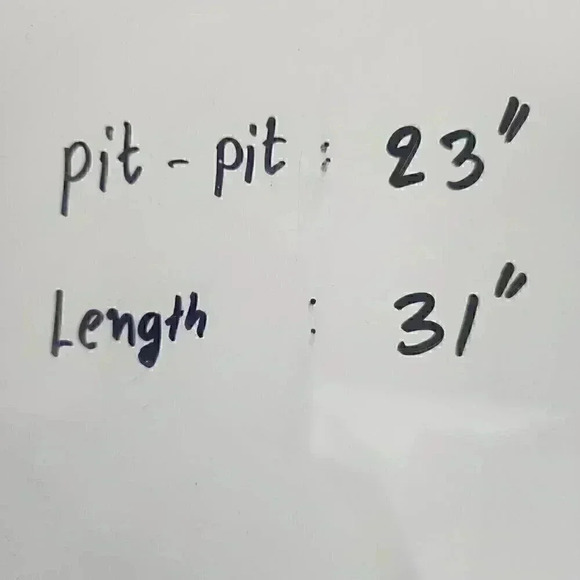 pit - pit : 23"
Length : 31"